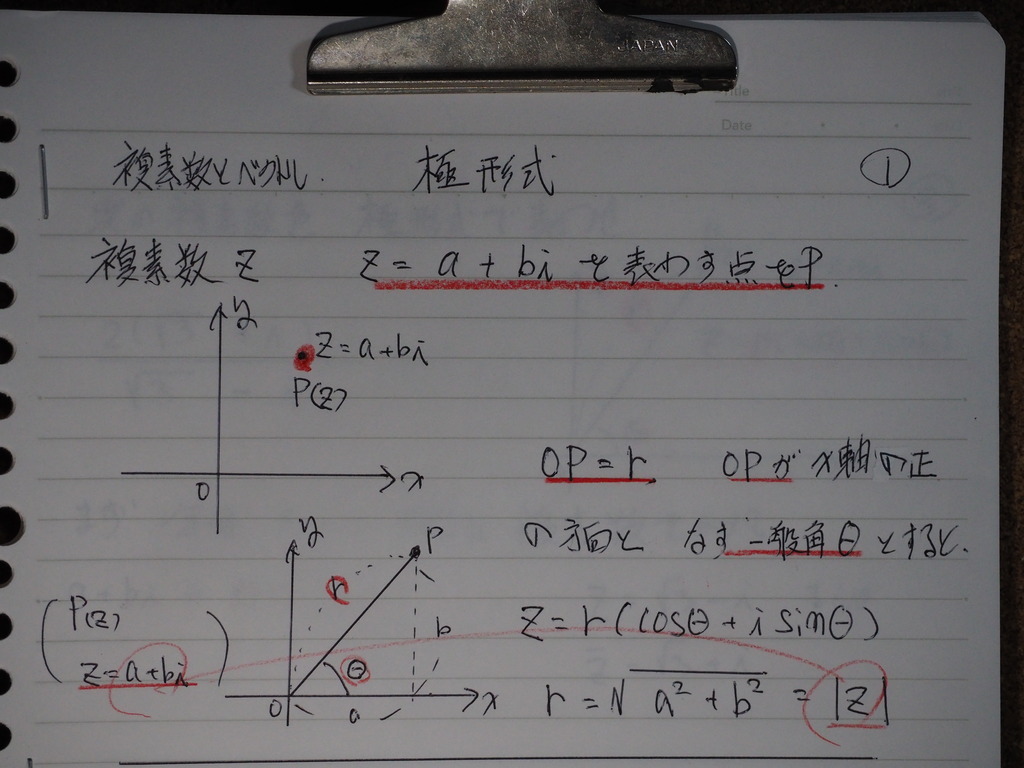 JAPAN
Title
Date
複素数とベクトル. 極形式 ①
複素数 z z = a + bi を表わす点をP.
y
z = a + bi
P(z)
0 x
OP = r. OPがx軸の正
の方向と なす一般角θとすると、
y P
r
P(z)
z = a + bi
b
θ
0 a x
z = r (cosθ + i sinθ)
r = √a² + b² = |z|